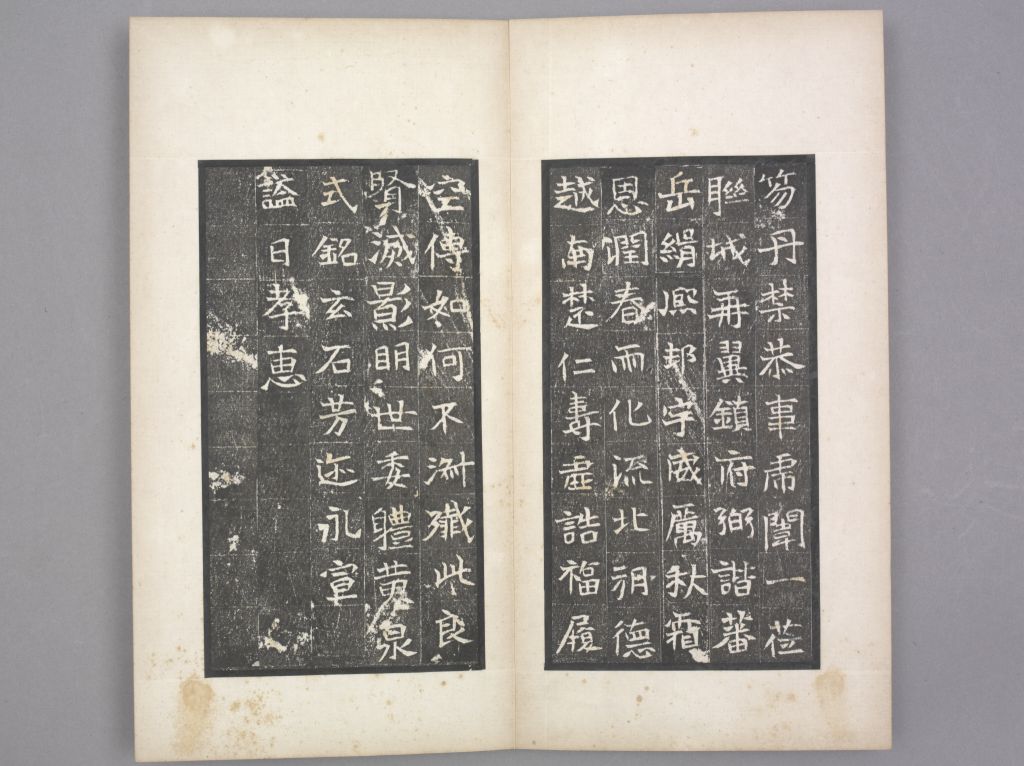 笏丹禁恭事虎闈一莅
聮城再翼鎮府弼諧蕃
岳緝熙邦宇威厲秋霜
恩潤春而化流北朔德
越南楚仁壽虛誥福履
空傳如何不淑殲此良
賢滅影明世委體黃泉
式銘玄石芳迹永宣
諡曰孝惠